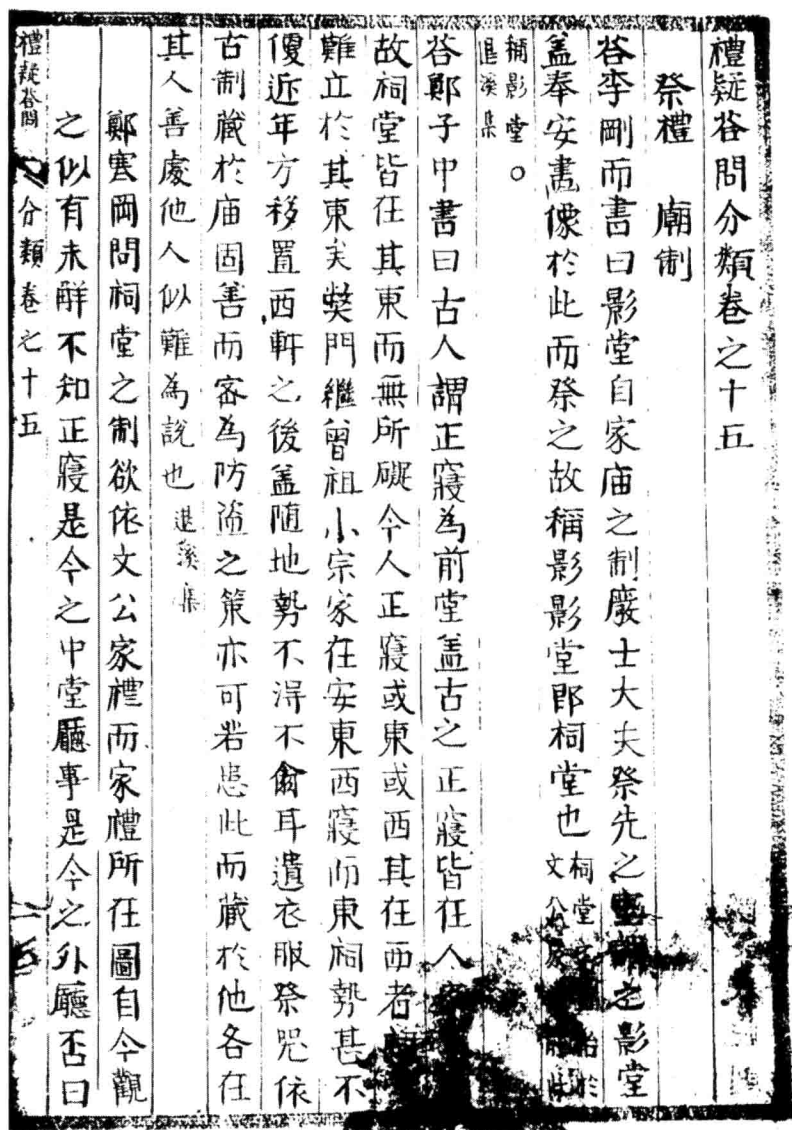 禮疑答問分類卷之十五
祭禮　廟制
答李剛而書曰影堂自家庙之制廢士大夫祭先之 之影堂
盖奉安畵像於此而祭之故稱影影堂即祠堂也祠堂 始於文公家 前此
稱影堂退溪集○
答鄭子中書曰古人謂正寢為前堂盖古之正寢皆在人
故祠堂皆在其東而無所礙今人正寢或東或西其在西者
難立於其東矣樊門繼曾祖小宗家在安東西寢而東祠勢甚不
便近年方移置西軒之後盖随地勢不得不尒耳遺衣服祭噐依
古制藏於庙固善而密為防盗之策亦可若患此而藏於他各在
其人善處他人似難為說也退溪集
鄭寒岡問祠堂之制欲依文公家禮而家禮所在圖自今觀
之似有未詳不知正寢是今之中堂廳事是今之外廳否曰
禮疑答問分類卷之十五